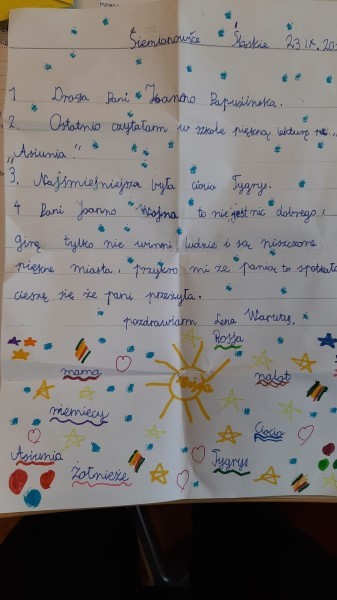 Siemianowice Śląskie 23 IX.
1 Droga Pani Joanno Papuzińska.
2. Ostatnio czytałam w szkole piękną lekturę
„Asiunia".
3. Najśmieśniejsza była ciocia Tygrys.
4 Pani Joanno Wojna to nie jest nic dobrego,
giną tylko nic winni ludzie i są niszczone
piękne miasta, przykro mi że panią to spotkało
cieszę się że pani przeżyła.
pozdrawiam Lena
Rosja
mama
nalot
niemiecy
Ciocia
Asiunia
Tygrys
Żołnieże